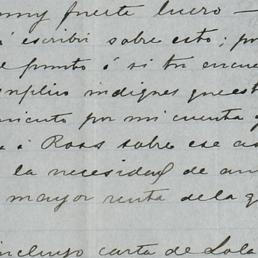 muy fuerte luero —
á escribir sobre esto; po
el punto ó si tu encue
mplio indigres que est
miento por mi cuenta y
a á Ross sobre ese as
la necesidad de au
mayor renta de la q
incluyo carta de Lola